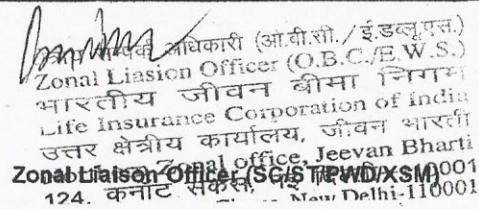 सम्पर्क अधिकारी (ओ.वी.सी./ई.डब्लू.एस.)
Zonal Liasion Officer (O.B.C./E.W.S.)
भारतीय जीवन बीमा निगम
Life Insurance Corporation of India
उत्तर क्षेत्रीय कार्यालय, जीवन भारती
Zonal office, Jeevan Bharti
Zonal Liaison Officer (SC/ST/PWD/XSM)
124, कनॉट सर्कस, नई 110001
New Delhi-110001